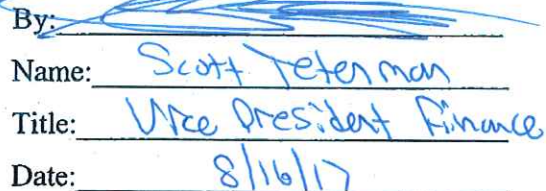 By:
Name: Scott Teterman
Title: Vice President Finance
Date: 8/16/17